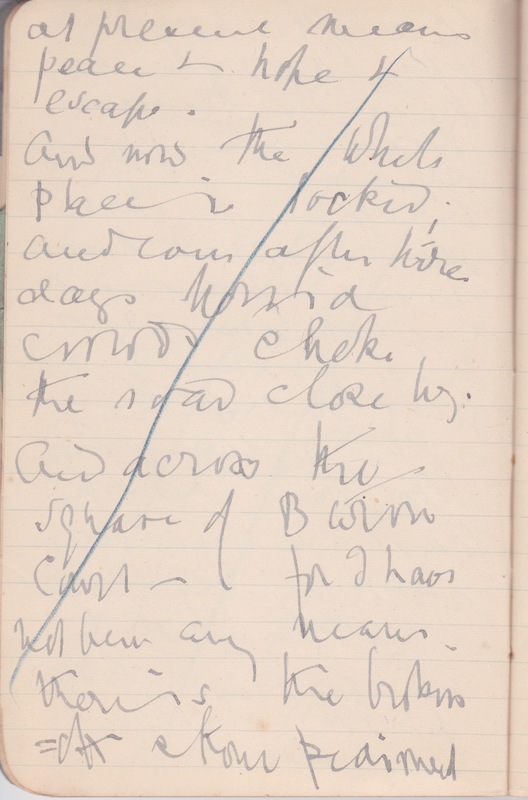 at present means
peace & hope &
escape.
And now the whole
place is locked,
and
days horrid
crowds choke
the road close by.
And across the
square of Baron
Court – for I have
not been any means
there is the broken
stone pediment